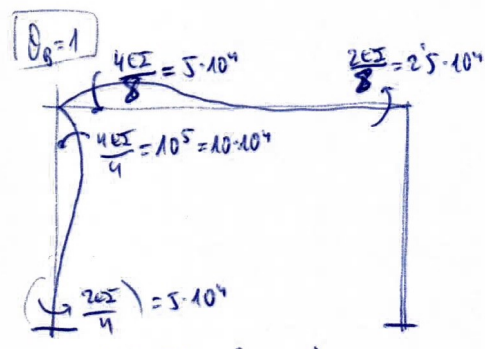 θ_B=1
4EI/8 = 5·10⁴
2EI/8 = 2'5·10⁴
4EI/4 = 10⁵ = 10·10⁴
2EI/4 = 5·10⁴